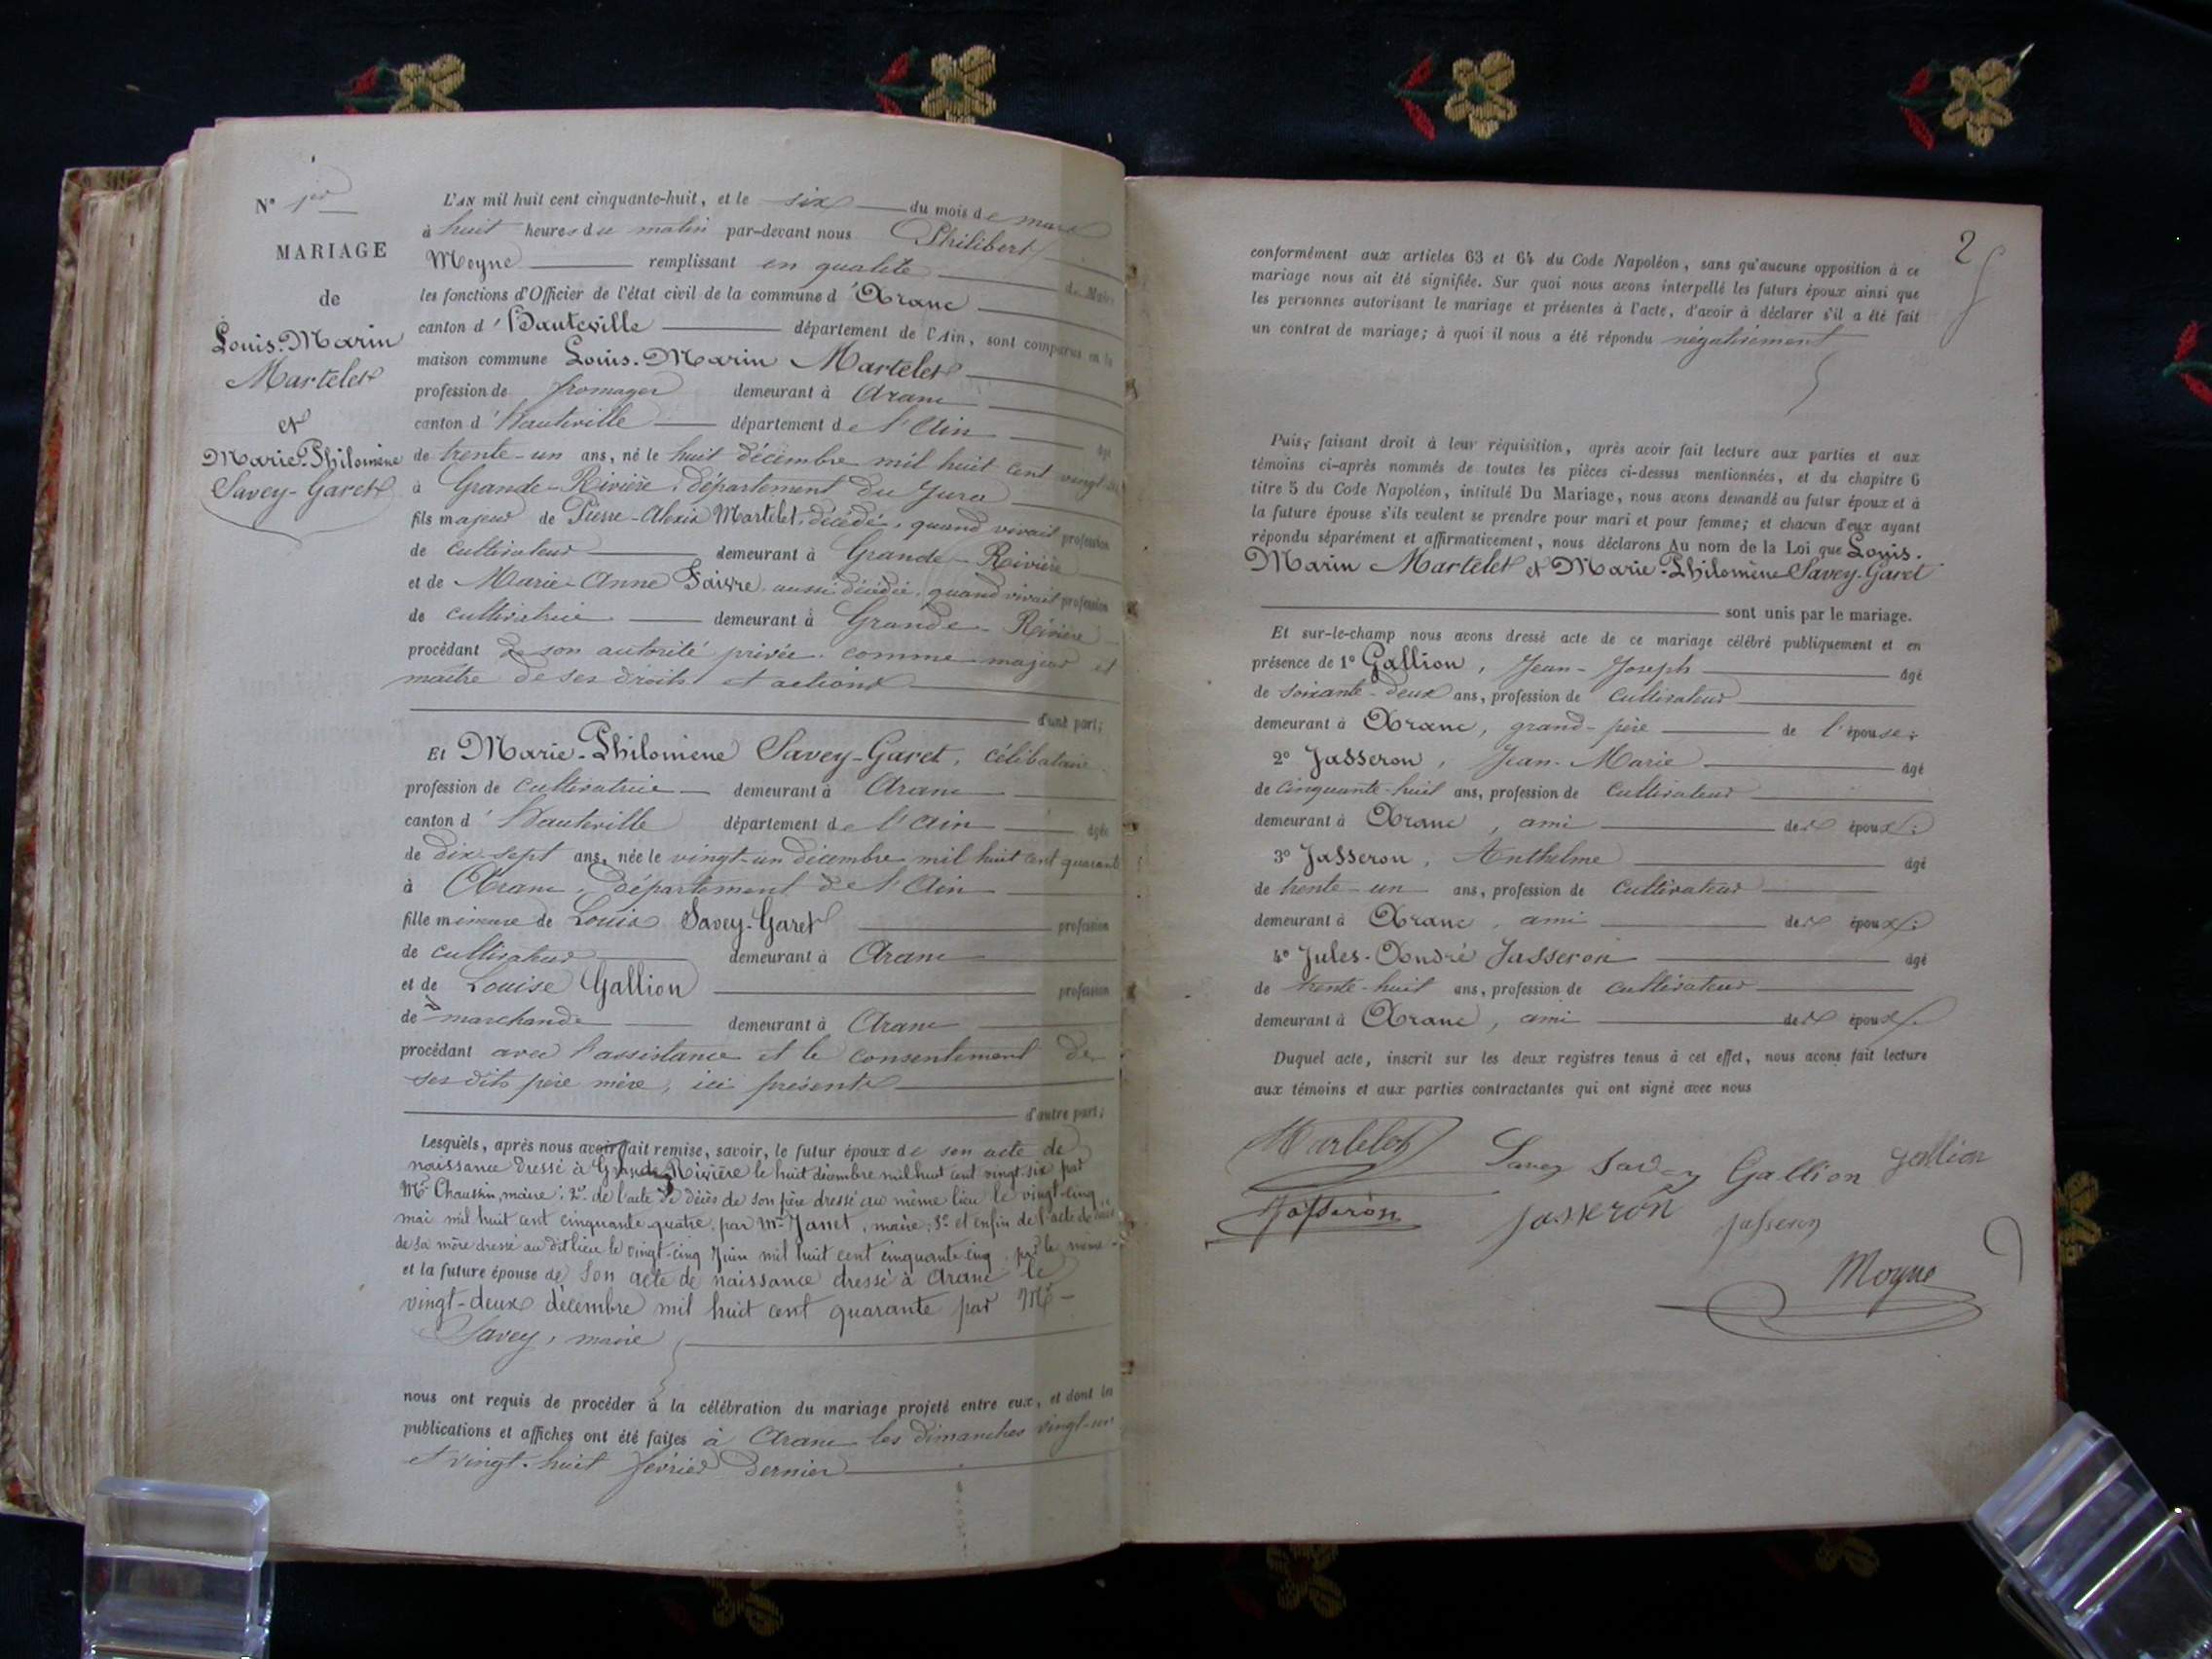 N° 1er
MARIAGE
de
Louis-Marin
Martelet
et
Marie-Philomène
Savey-Garet
L'AN mil huit cent cinquante-huit, et le six du mois de mars
à huit heures du matin par-devant nous Philibert
Moyne remplissant en qualité de Maire
les fonctions d'Officier de l'état civil de la commune d'Aranc
canton d'Hauteville département de l'Ain, sont comparus en la
maison commune Louis-Marin Martelet
profession de fromager demeurant à Aranc
canton d'Hauteville département de l'Ain âgé
de trente-un ans, né le huit décembre mil huit cent vingt-six
à Grande-Rivière, département du Jura
fils majeur de Pierre-Alexis Martelet, décédé, quand vivait profession
de cultivateur demeurant à Grande-Rivière
et de Marie-Anne Faivre, aussi décédée, quand vivait profession
de cultivatrice demeurant à Grande-Rivière
procédant de son autorité privée comme majeur et
maître de ses droits et actions
d'une part;
Et Marie-Philomène Savey-Garet, célibataire
profession de cultivatrice demeurant à Aranc
canton d'Hauteville département de l'Ain âgée
de dix-sept ans, née le vingt-un décembre mil huit cent quarante
à Aranc, département de l'Ain
fille mineure de Louis Savey-Garet profession
de cultivateur demeurant à Aranc
et de Louise Gallion profession
de marchande demeurant à Aranc
procédant avec l'assistance et le consentement de
ses dits père mère, ici présents
d'autre part;
Lesquels, après nous avoir fait remise, savoir, le futur époux de son acte de
naissance dressé à Grande Rivière le huit décembre mil huit cent vingt-six par
Mr Chaussin, maire; 2° de l'acte de décès de son père dressé au même lieu le vingt-cinq
mai mil huit cent cinquante-quatre, par Mr Janet, maire; 3° et enfin de l'acte de décès
de sa mère dressé au dit lieu le vingt-cinq Juin mil huit cent cinquante-cinq par le même
et la future épouse de son acte de naissance dressé à Aranc le
vingt-deux décembre mil huit cent quarante par Mr
Savey, maire
nous ont requis de procéder à la célébration du mariage projeté entre eux, et dont les
publications et affiches ont été faites à Aranc les dimanches vingt-un
et vingt-huit février dernier
2
conformément aux articles 63 et 64 du Code Napoléon, sans qu'aucune opposition à ce
mariage nous ait été signifiée. Sur quoi nous avons interpellé les futurs époux ainsi que
les personnes autorisant le mariage et présentes à l'acte, d'avoir à déclarer s'il a été fait
un contrat de mariage; à quoi il nous a été répondu négativement
Puis, faisant droit à leur réquisition, après avoir fait lecture aux parties et aux
témoins ci-après nommés de toutes les pièces ci-dessus mentionnées, et du chapitre 6
titre 5 du Code Napoléon, intitulé Du Mariage, nous avons demandé au futur époux et à
la future épouse s'ils veulent se prendre pour mari et pour femme; et chacun d'eux ayant
répondu séparément et affirmativement, nous déclarons Au nom de la Loi que Louis-
Marin Martelet et Marie-Philomène Savey-Garet
sont unis par le mariage.
Et sur-le-champ nous avons dressé acte de ce mariage célébré publiquement et en
présence de 1° Gallion, Jean-Joseph âgé
de soixante-deux ans, profession de cultivateur
demeurant à Aranc, grand-père de l'épouse;
2° Jasseron, Jean-Marie âgé
de cinquante-huit ans, profession de cultivateur
demeurant à Aranc, ami des époux;
3° Jasseron, Anthelme âgé
de trente-un ans, profession de cultivateur
demeurant à Aranc, ami des époux;
4° Jules-André Jasseron âgé
de trente-huit ans, profession de cultivateur
demeurant à Aranc, ami des époux.
Duquel acte, inscrit sur les deux registres tenus à cet effet, nous avons fait lecture
aux témoins et aux parties contractantes qui ont signé avec nous
Martelet Savey Savey Gallion gallion
Jasseron Jasseron Jasseron
Moyne